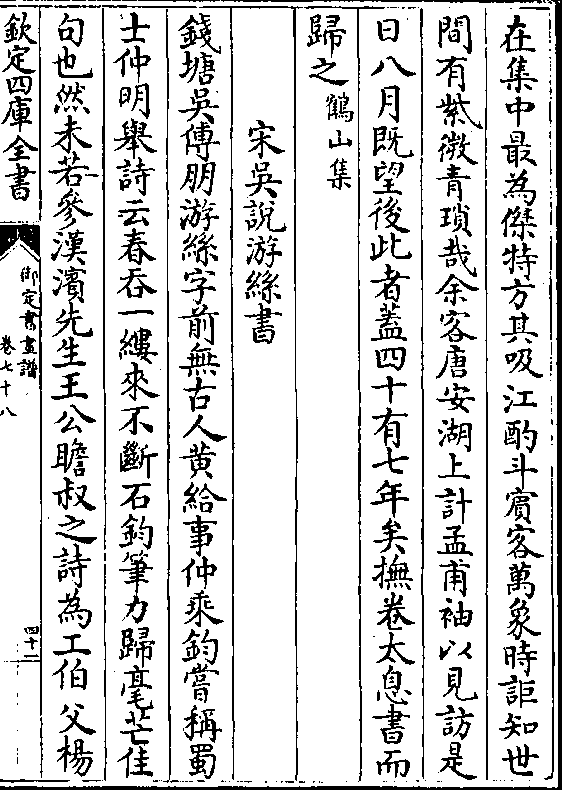 在集中最為傑特方其吸江酌斗賓客萬象時詎知世
間有紫微青瑣哉余客唐安湖上計孟甫袖以見訪是
日八月既望後此者蓋四十有七年矣撫卷太息書而
歸之鶴山集
宋吳說游絲書
錢塘吳傅朋游絲字前無古人黄給事仲乘鈞嘗稱蜀
士仲明舉詩云春吞一縷來不斷石鈞筆力歸毫芒佳
句也然未若參漢濱先生王公瞻叔之詩為工伯父楊
欽定四庫全書
御定書畫譜
卷七十八
四十二